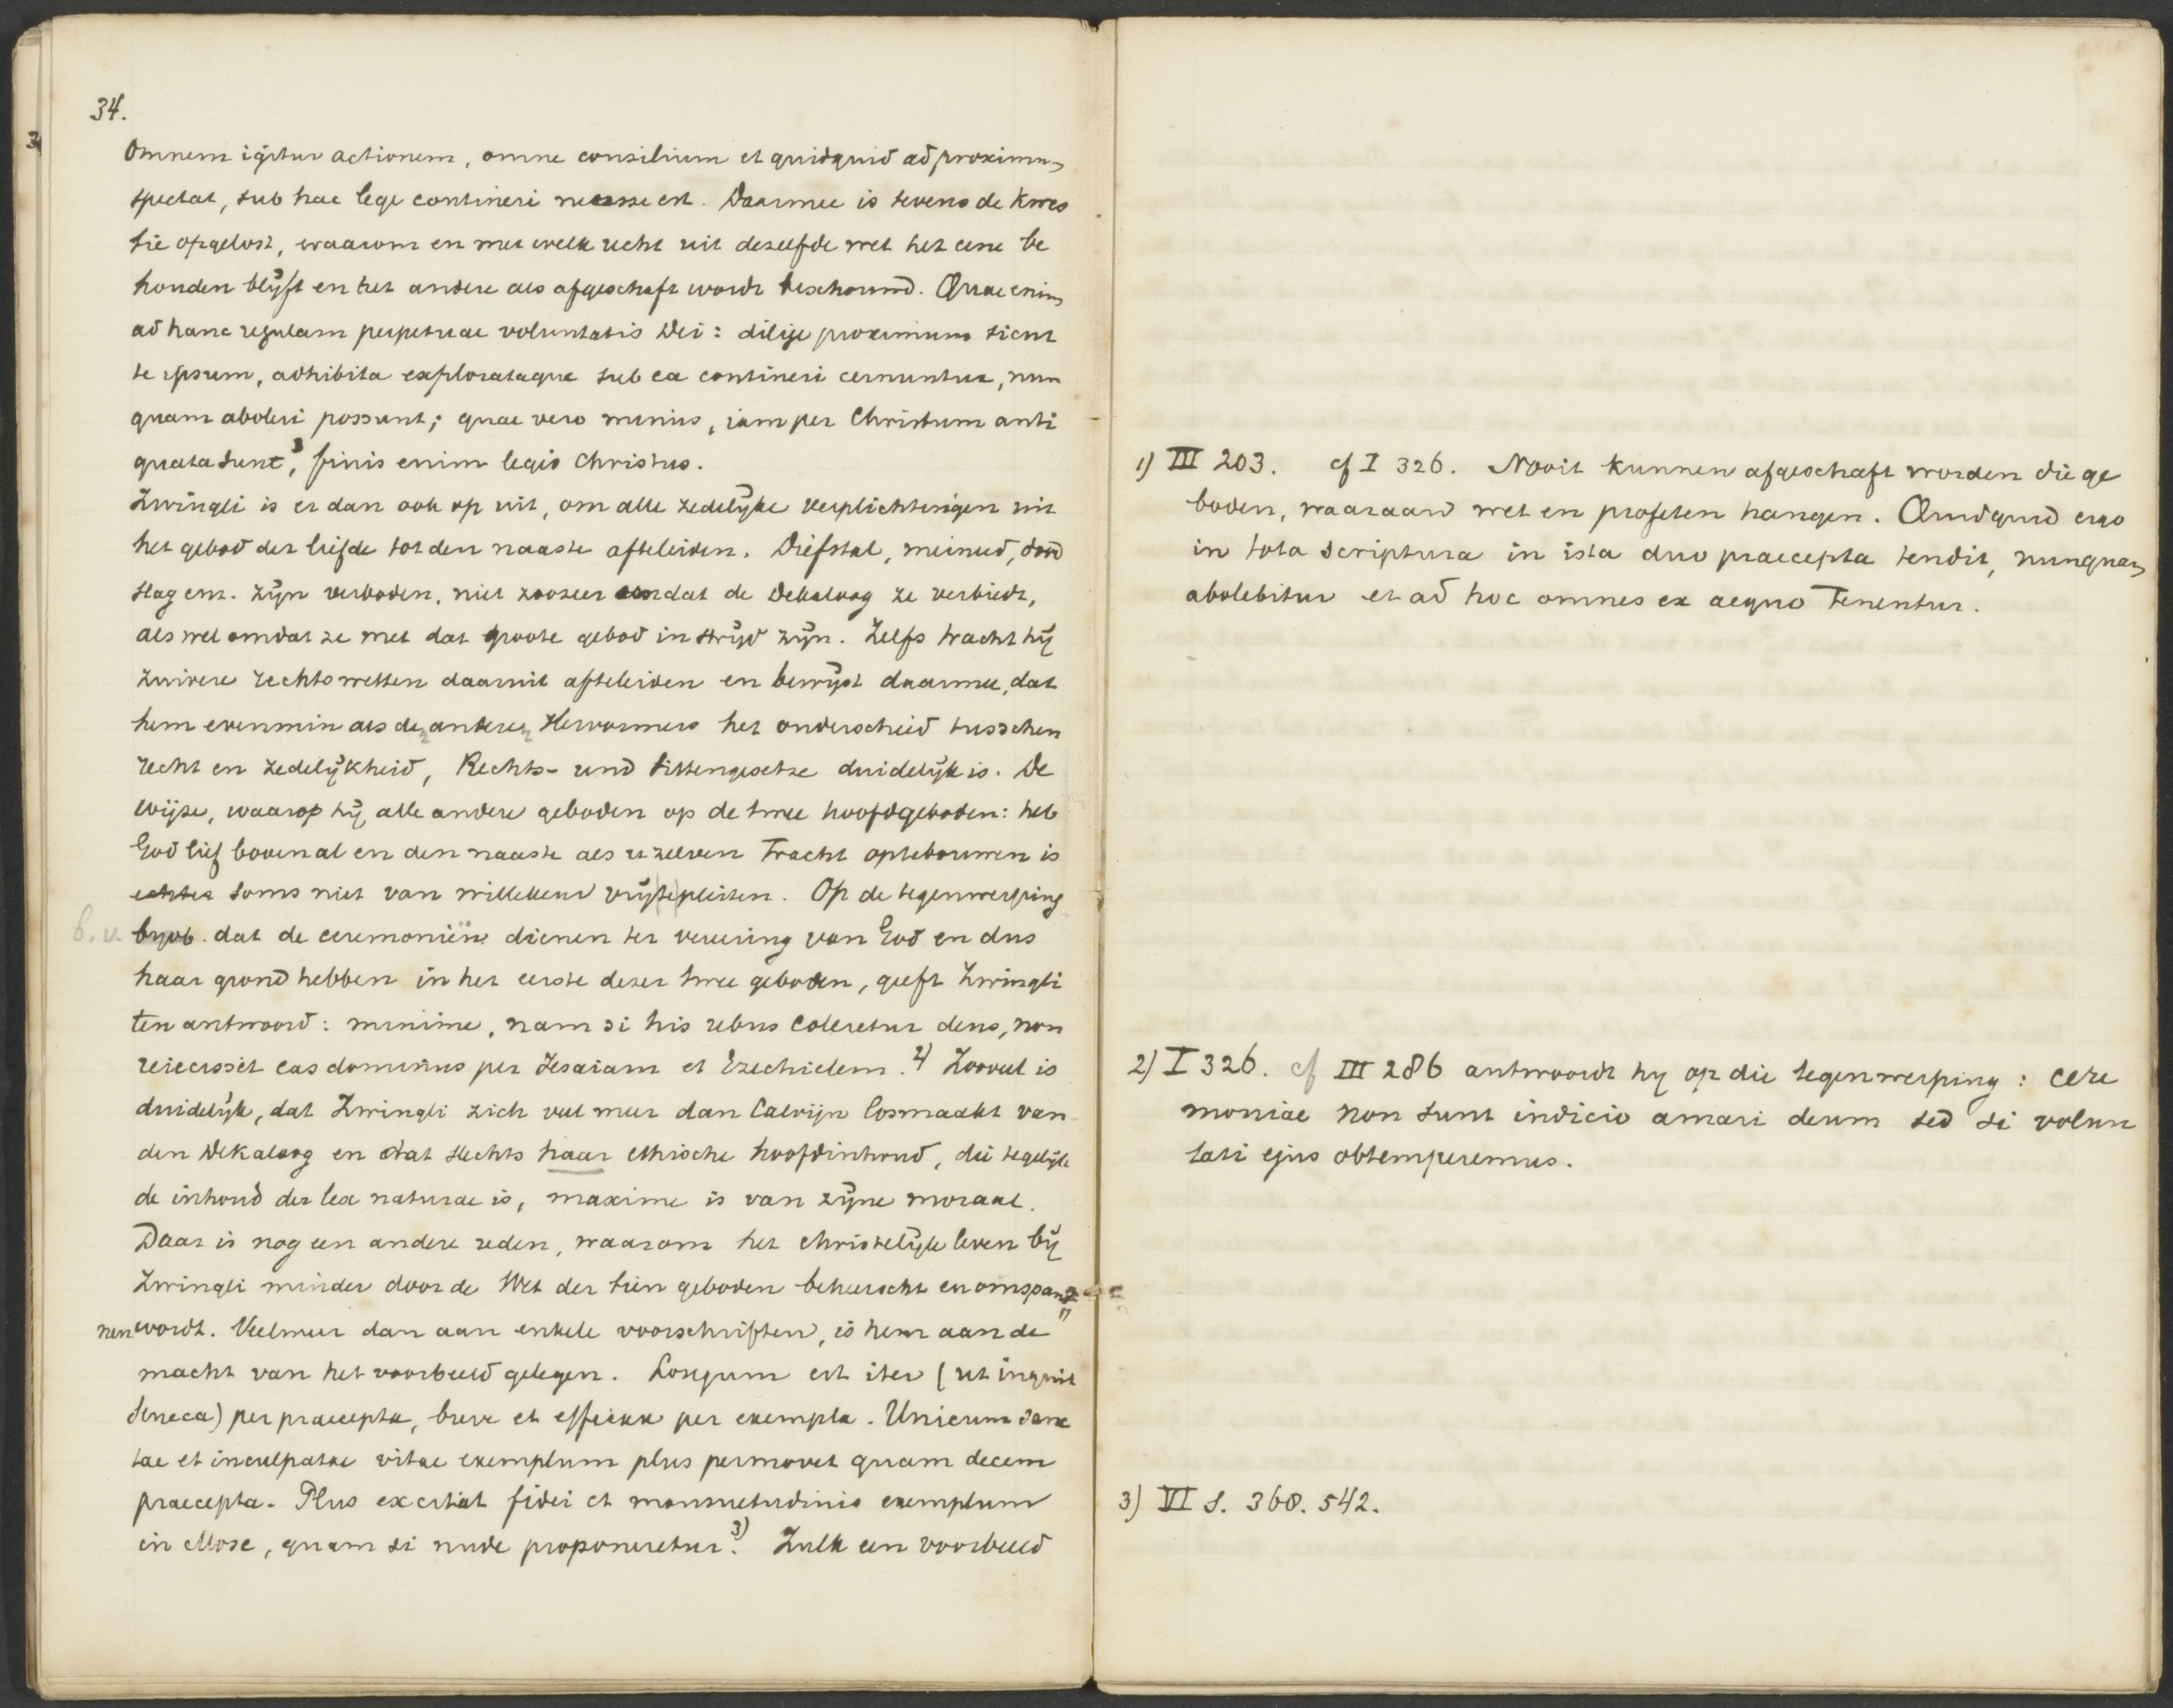 34.
Omnem igitur actionem, omne consilium et quidquid ad proximum
spectat, sub hac lege contineri necesse est. Daarmee is tevens de kwes
tie opgelost, waarom en met welk recht uit dezelfde wet het eene be
houden blijft en het andere als afgeschaft wordt beschouwd. Quae enim
ad hanc regulam perpetuae voluntatis Dei: dilige proximum sicut
te ipsum, adhibita explorataque sub ea contineri cernuntur, nun
quam aboleri possunt; quae vero minus, iam per Christum anti
quata sunt, finis enim legis Christus.
Zwingli is er dan ook op uit, om alle zedelijke verplichtingen uit
het gebod der liefde tot den naaste afteleiden. Diefstal, meineed, dood
slag enz. zijn verboden, niet zoozeer omdat de Dekaloog ze verbiedt,
als wel omdat ze met dat groote gebod in strijd zijn. Zelfs tracht hij
zuivere rechtswetten daaruit afteleiden en bewijst daarmee, dat
hem evenmin als den anderen Hervormers het onderscheid tusschen
recht en zedelijkheid, Rechts- und Sittengesetze duidelijk is. De
wijze, waarop hij alle andere geboden op de twee hoofdgeboden: heb
God lief bovenal en den naaste als uzelven tracht optebouwen is
echter soms niet van willekeur vrijtepleiten. Op de tegenwerping
b.v. dat de ceremoniën dienen ter vereering van God en dus
haar grond hebben in het eerste dezer twee geboden, geeft Zwingli
ten antwoord: minime, nam si his rebus coleretur deus, non
reiecisset eas dominus per Jesaiam et Ezechielem. 2) Zooveel is
duidelijk, dat Zwingli zich veel meer dan Calvijn losmaakt van
den Dekaloog en dat slechts haar ethische hoofdinhoud, die tegelijk
de inhoud der lex naturae is, maxime is van zijne moraal.
Daar is nog een andere reden, waarom het christelijk leven bij
Zwingli minder door de Wet der tien geboden beheerscht en omspan
nen wordt. Veelmeer dan aan enkele voorschriften, is hem aan de
macht van het voorbeeld gelegen. Longum est iter (ut inquit
Seneca) per praecepta, breve et efficax per exempla. Unicum sanc
tae et inculpatae vitae exemplum plus permovet quam decem
praecepta. Plus excitat fidei et mansuetudinis exemplum
in Mose, quam si nude proponeretur. 3) Zulk een voorbeeld
1) III 203. cf I 326. Nooit kunnen afgeschaft worden die ge
boden, waaraan wet en profeten hangen. Quidquid ergo
in tota scriptura in ista duo praecepta tendit, nunquam
abolebitur et ad hoc omnes ex aequo tenentur.
2) I 326. cf III 286 antwoordt hij op die tegenwerping: cere
moniae non sunt indicio amari deum sed si volun
tati ejus obtemperemus.
3) VI S. 360. 542.